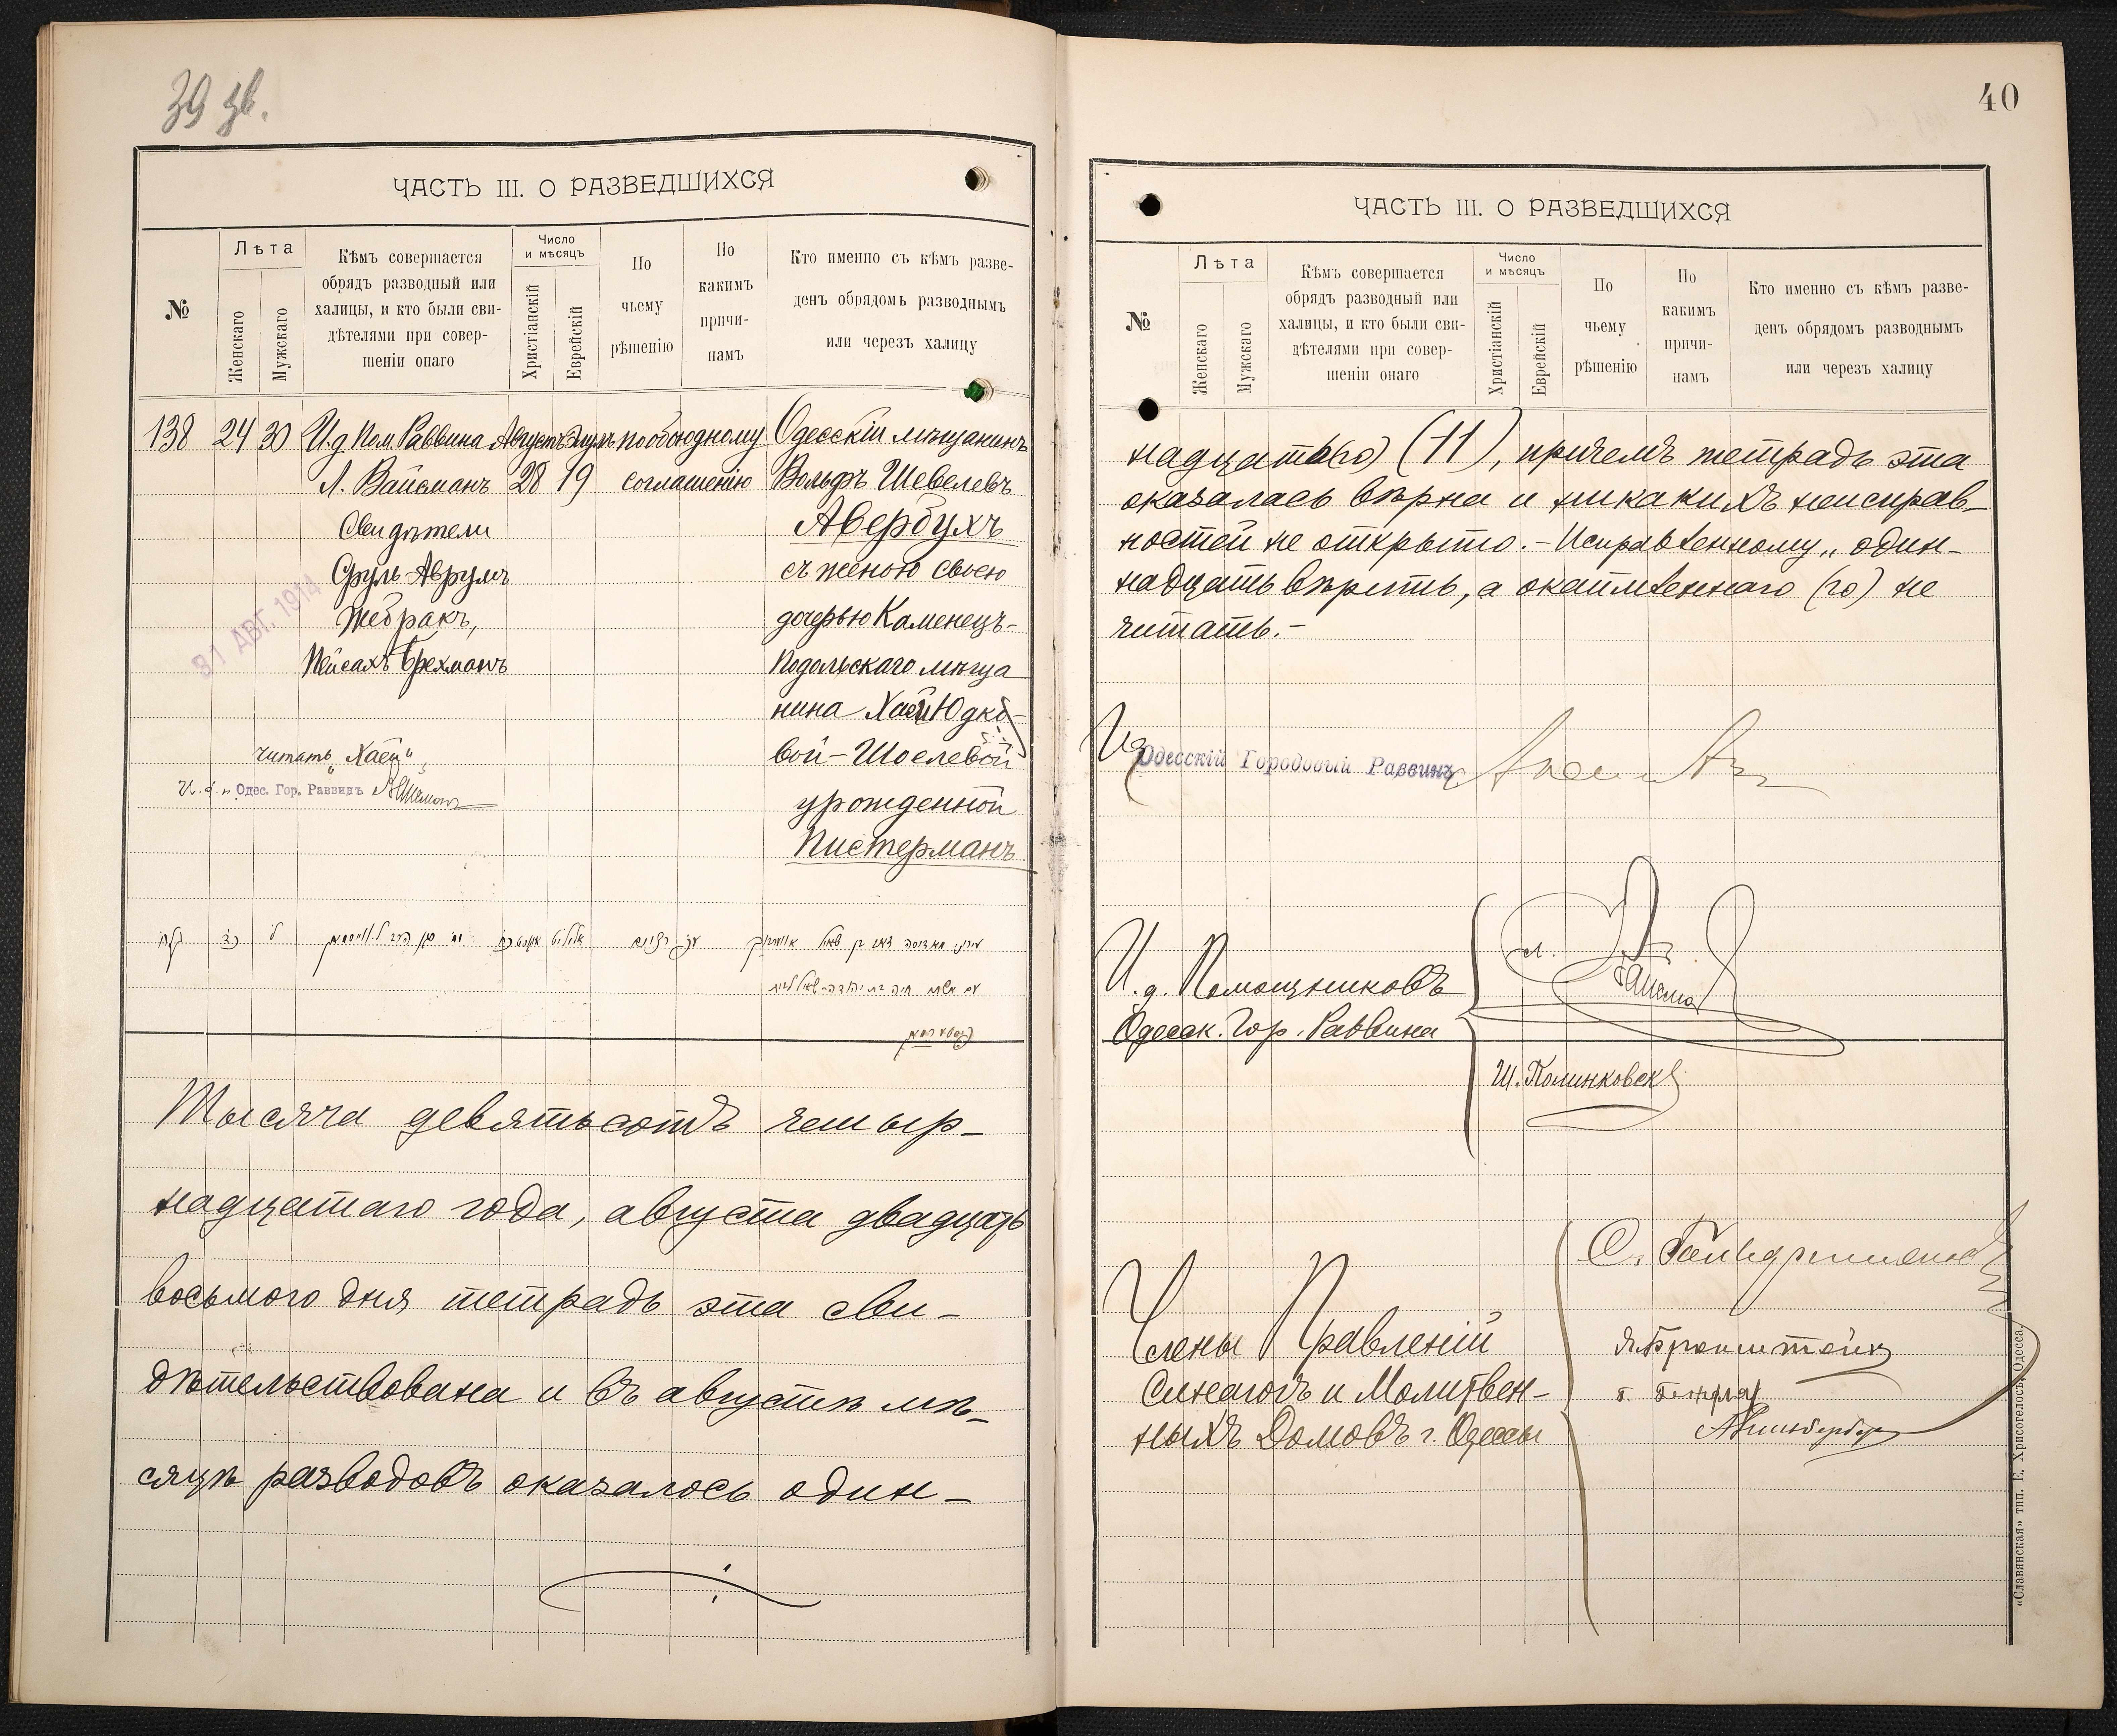 39 зв.
ЧАСТЬ III. О РАЗВЕДШИХСЯ
№
Лѣта
Женскаго
Мужскаго
Кѣмъ совершается
обрядъ разводный или
халицы, и кто были сви-
дѣтелями при совер-
шеніи онаго
Число
и мѣсяцъ
Христіанскій
Еврейскій
По
чьему
рѣшенію
По
какимъ
причи-
намъ
Кто именно съ кѣмъ разве-
денъ обрядомъ разводнымъ
или черезъ халицу
138 24 30 И.д Пом. Раввина Августъ Элулъ по обоюдному Одесскій мѣщанинъ
Л. Вайсманъ 28 19 соглашенію Вольфъ Шевелевъ
Свидѣтели Авербухъ
Сруль-Аврумъ съ женою своею
Жебракъ, дочерью Каменецъ-
Пейсахъ Брехманъ Подольскаго мѣща
нина Хаей Юдко-
вой-Шоелевой
урожденной
Пистерманъ
31 АВГ. 1914
читать „Хаей"
И. д. Одес. Гор. Раввинъ
Тысяча девятьсотъ четыр-
надцатаго года, августа двадцать
восьмого дня тетрадь эта сви-
дѣтельствована и въ августѣ мѣ-
сяцѣ разводовъ оказалось один-
40
ЧАСТЬ III. О РАЗВЕДШИХСЯ
№
Лѣта
Женскаго
Мужскаго
Кѣмъ совершается
обрядъ разводный или
халицы, и кто были сви-
дѣтелями при совер-
шеніи онаго
Число
и мѣсяцъ
Христіанскій
Еврейскій
По
чьему
рѣшенію
По
какимъ
причи-
намъ
Кто именно съ кѣмъ разве-
денъ обрядомъ разводнымъ
или черезъ халицу
надцать(го) (11), причемъ тетрадь эта
оказалась вѣрна и никакихъ неисправ-
ностей не открыто.- Исправленному „один-
надцать вѣрить, а окаймленнаго (го) не
читать.-
Одесскій Городовый Раввинъ
И.д. Помощниковъ
Одесск. Гор. Раввина
Ш. Полинковск
Члены Правленій
Синагогъ и Молитвен-
ныхъ Домовъ г. Одессы
Бронштейн
«Славянская» тип. Е. Хрисогелосъ, Одесса.